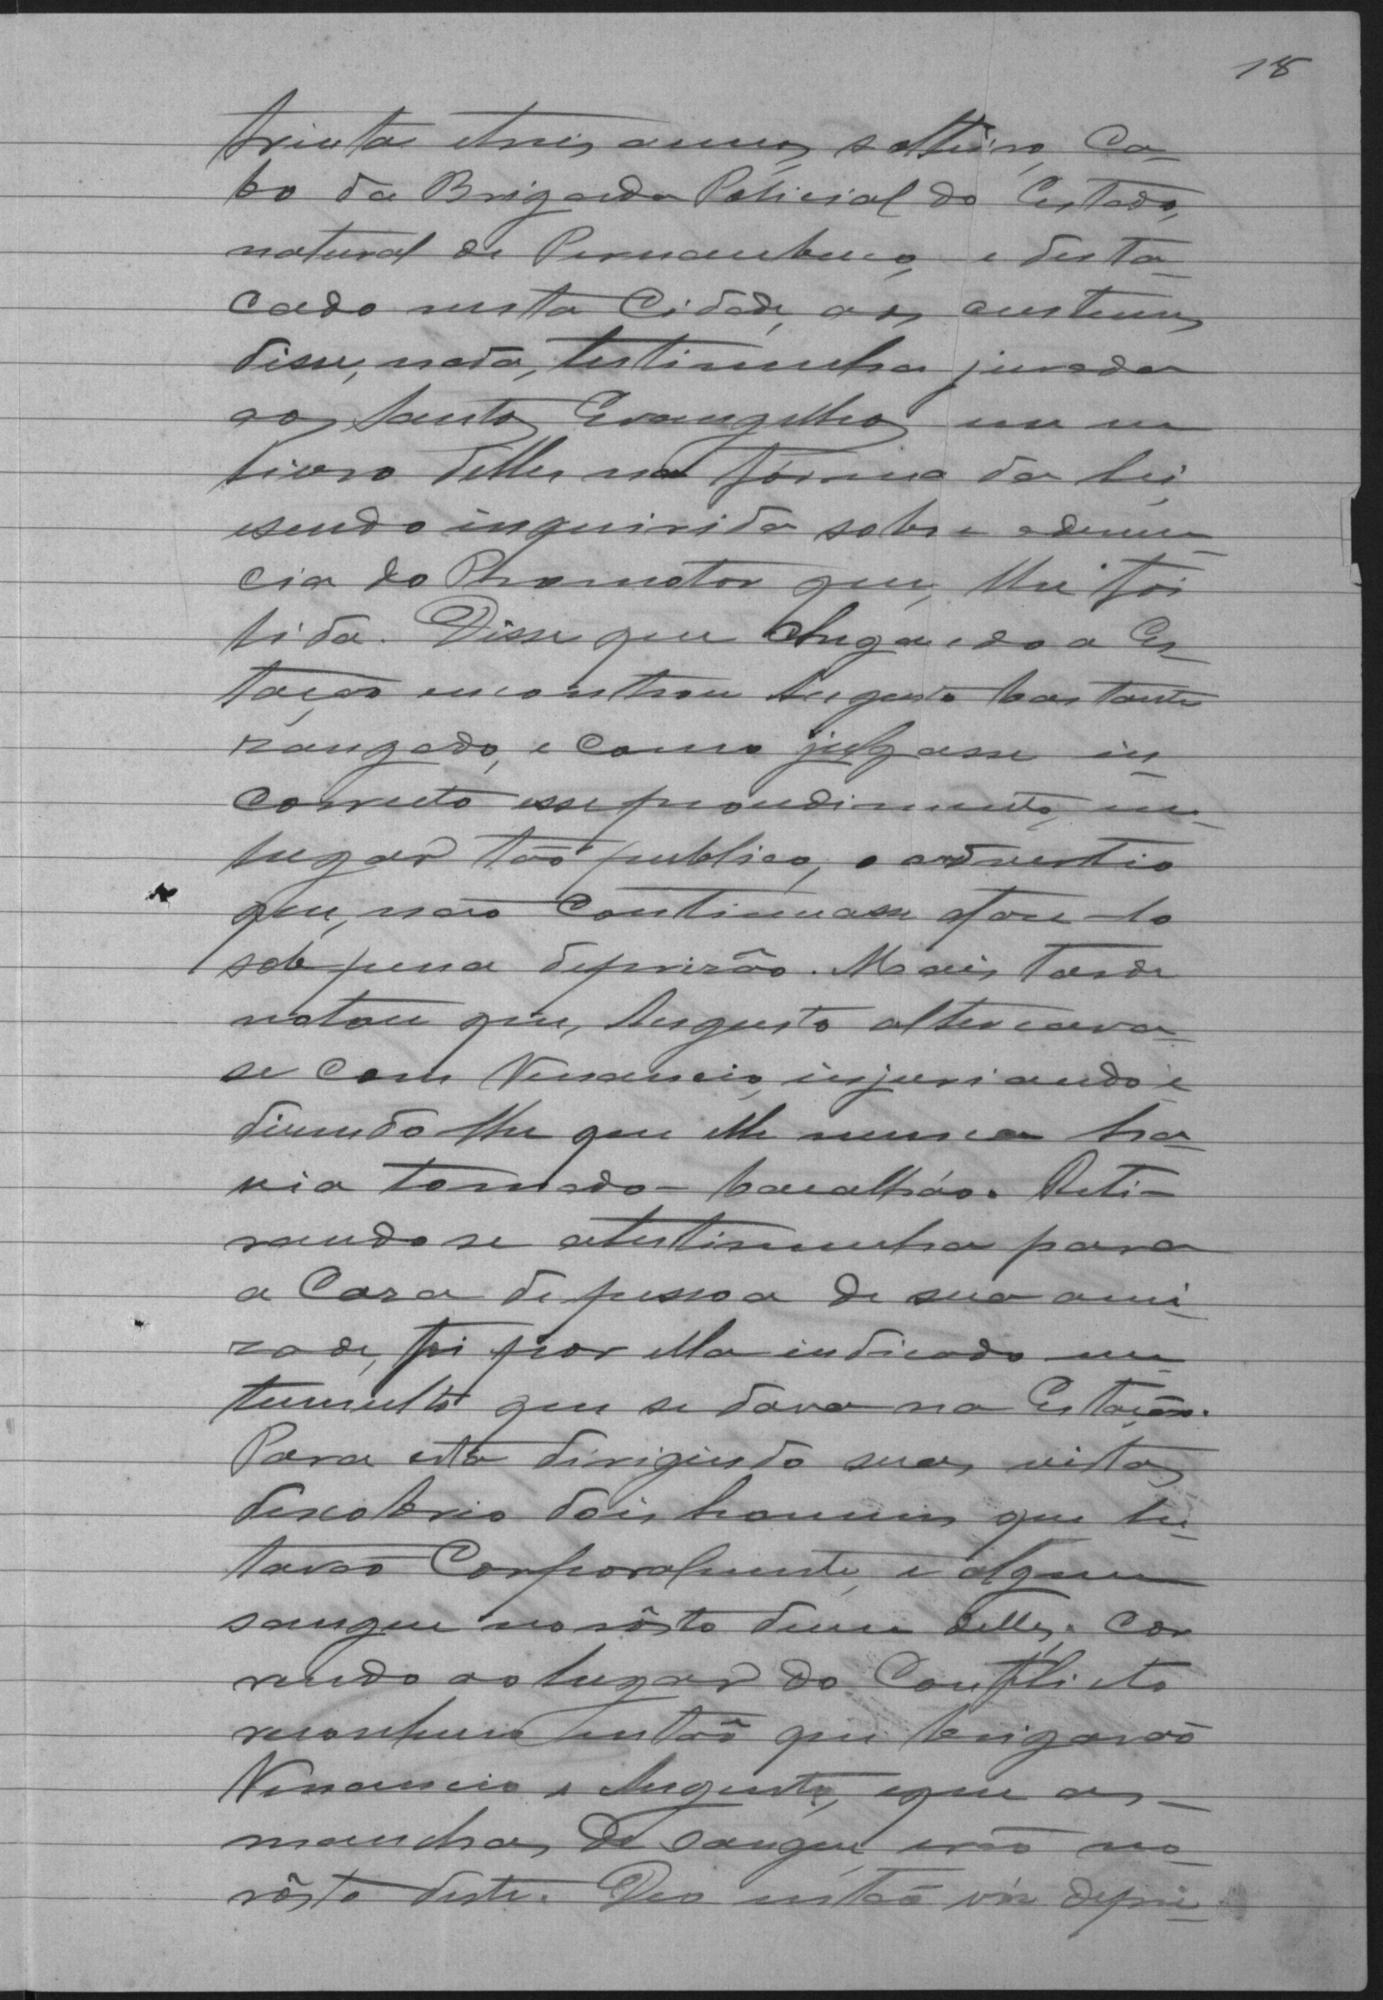 18
trinta etres annos, solteiro, Ca-
bo da Brigada Policial do Estado,
natural de Pernambuco, e desta-
cado nesta Cidade, aos custumes
disse, nada, testimunha jurada
aos Santos Evangelhos em um
livro delles na fórma da lei,
esendo inquirida sobre adenun-
cia do Promotor que, lhe foi
lida. Disse que chegando a Es-
tação encontrou Augusto bastante
zangado, e como julgasse in-
correcto esse procedimento, em
lugar tão publico, o advertio
que, não continuasse afaze-lo
sob pena deprizão. Mais tarde
notou que, Augusto altercava-
se com Venancio, injuriando e
dizendo lhe que elle nunca ha-
via tomado- bacalháo. Reti-
rando se atestimunha para
a Caza de pessoa de sua ami-
zade, foi por ella indicado um
tumulto que se dava na Estação.
Para esta dirigindo suas vistas
descobrio dois homens que lu-
tavão Corporalmente, e algum
sangue no rôsto deum delles. Cor
rendo ao lugar do Conflicto
reconheceo então que brigavão
Venancio e Augusto, eque as-
manchas de sangue erão no
rôsto deste. Deo então vóz depri-